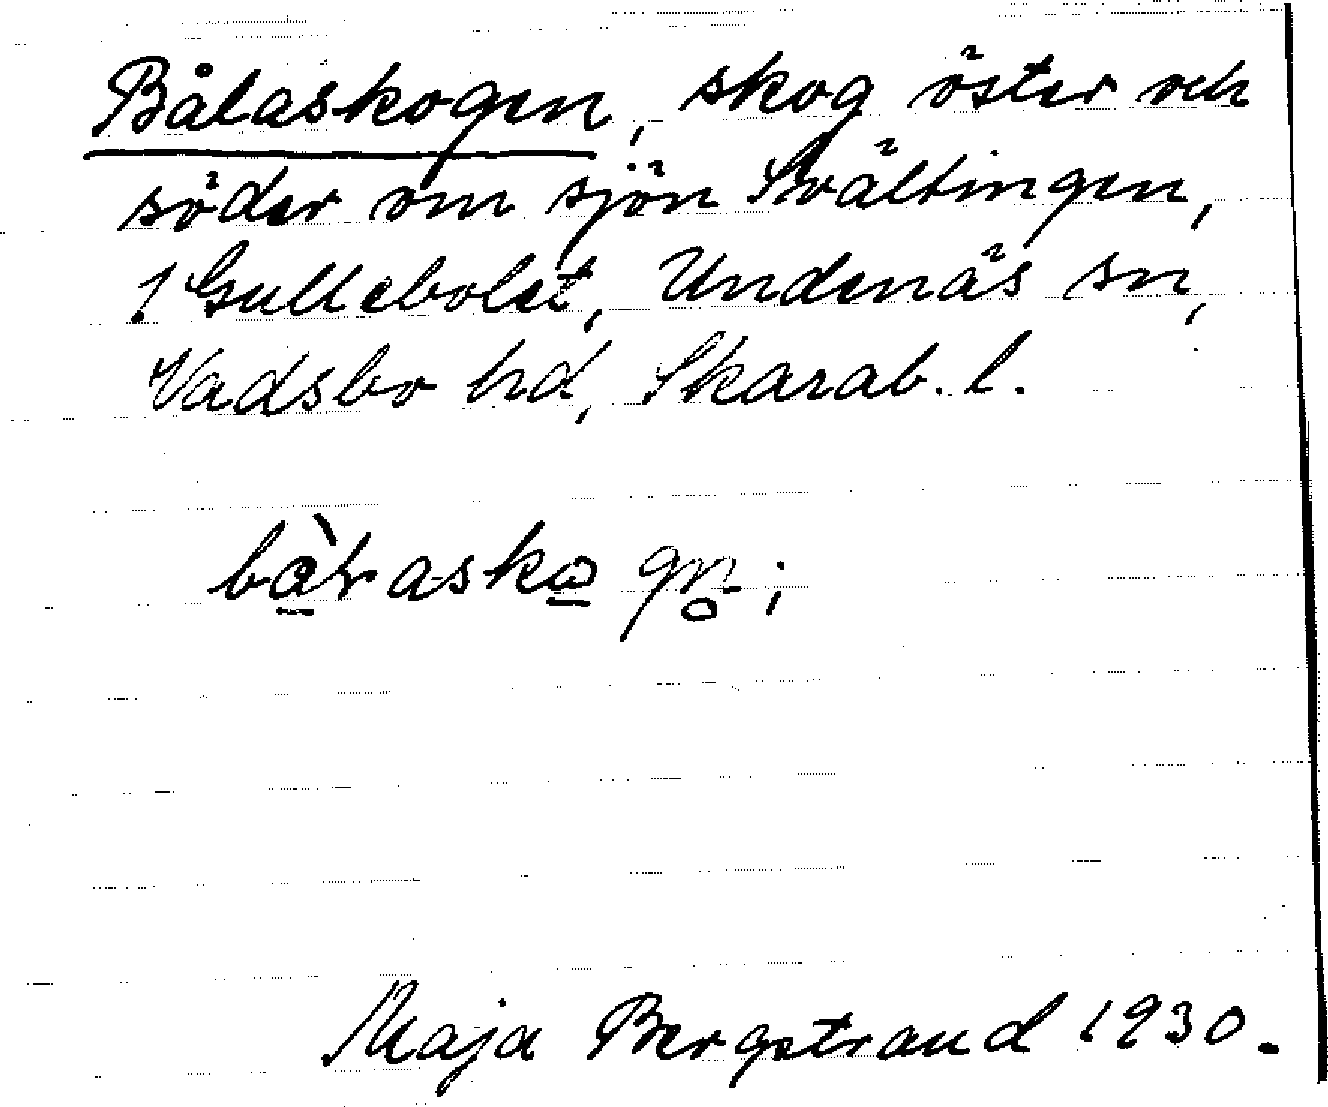 Bålaskogen, skog öster och
söder om sjön Svältingen,
1 Gullebolet, Undenäs sn,
Vadsbo hd, Skarab. l.
Maja Bergstrand 1930.